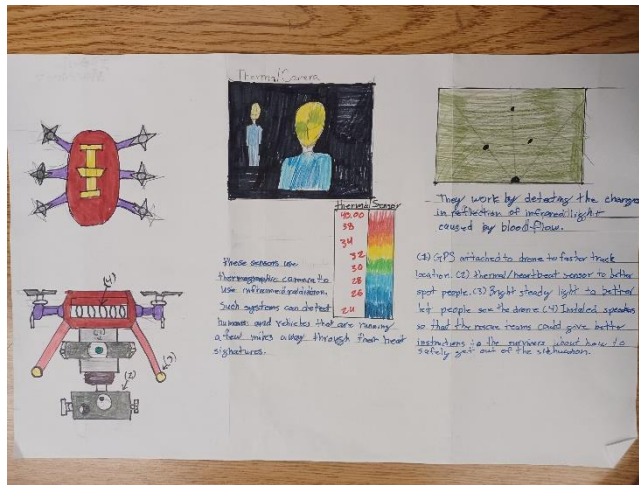 Thermal Camera
Thermal Sensor
40.00
38
34
32
30
28
26
24
These sensors use
thermographic camera to
use infraredradiation.
Such systems can detect
humans and vehicles that are running
a few miles away through their heat
signatures.
They work by detecting the changes
in reflection of infrared light
caused by blood flow.
(1) GPS attached to drone to faster track
location. (2) thermal/heartbeat sensor to better
spot people. (3) Bright steady light to better
let people see the drone. (4) Instaled speakers
so that the rescue teams could give better
instructions to the survivors about how to
safely get out of the situation.
(4)
(3)
(2)